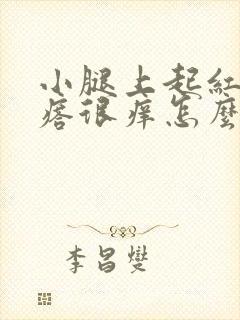 小腿上起紅
痞很痒怎麼
李昌燮